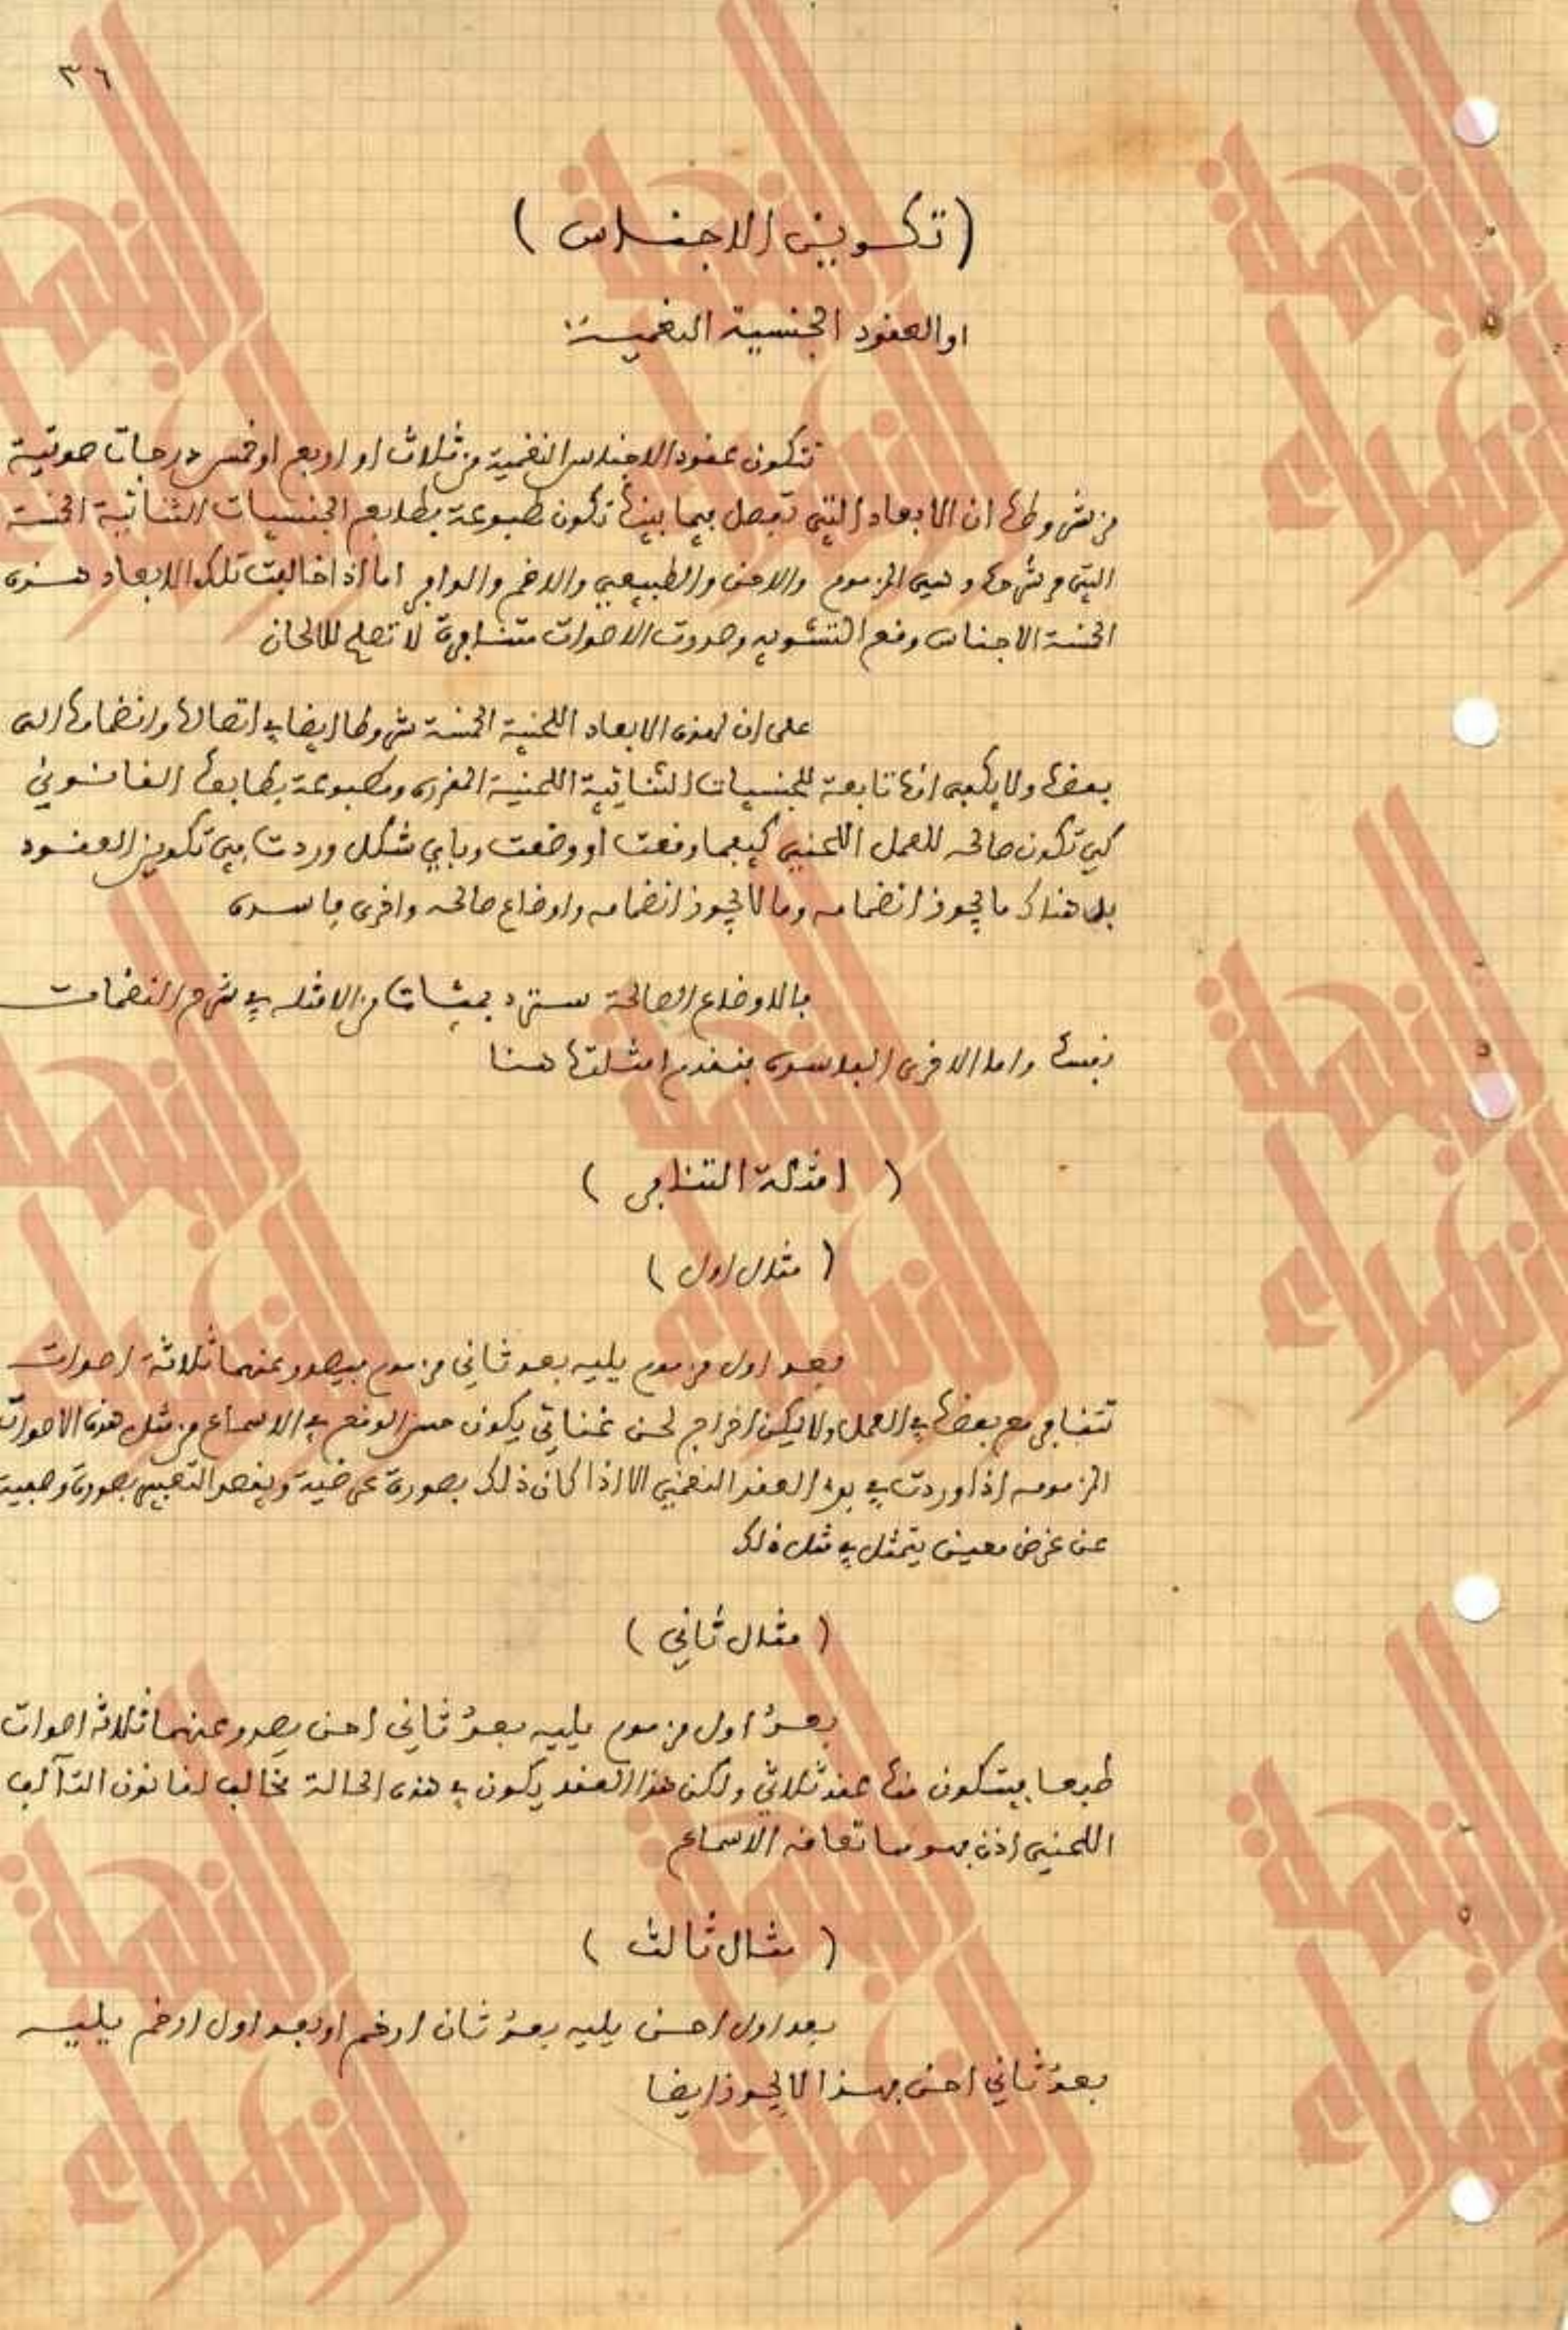 ٣٦
( تكوين الاجناس )
او العقود الجنسية النغمية
تتكون عقود الاجناس النغمية من ثلاث او اربع او خمس درجات صوتية
من شروطها ان الابعاد التي تفصل فيما بينها تكون مطبوعة بطابع الجنسيات الثنائية الخمسة
التي مر شرحها وهي المزموم والاحن والطبيعي والارخم والوافر اما اذا خالفت تلك الابعاد هذه
الخمسة الاجناس وقع التشويه وحدوث الاصوات متنافرة لا تصلح للالحان
على ان لهذه الابعاد اللحنية الخمسة شروطا ايضا في اتصالها وانضمامها الى
بعضها ولا يكفي انها تابعة للجنسيات الثنائية اللحنية المقررة ومطبوعة بطابعها القانوني
كي تكون صالحه للعمل اللحني كيفما وقعت او وضعت وباي شكل وردت في تكوين العقود
بل هناك ما يجوز انضمامه وما لا يجوز انضمامه واوضاع صالحه واخرى فاسده
فالاوضاع الصالحة سترد بمئات من الامثله في شرح النغمات
نفسها واما الاخرى الفاسده فنقدم امثلتها هنا
( امثلة التنافر )
( مثال اول )
بعد اول مزموم يليه بعد ثاني مزموم فيصدر عنهما ثلاثة اصوات
تتنافر مع بعضها في العمل ولا يمكن اخراج لحن غنائي يكون حسن الوقع في الاسماع من مثل هذه الاصوات
المزمومه اذا وردت في بدء العقد النغمي الا اذا كان ذلك بصورة عرضية وبقصد التعبير بصورة وصفية
عن غرض معين يتمثل في مثل ذلك
( مثال ثاني )
بعدٌ اول مزموم يليه بعدٌ ثاني احن يصدر عنهما ثلاثه اصوات
طبعا فيتكون منها عقد ثلاثي ولكن هذا العقد يكون في هذه الحالة مخالف لقانون التآلف
اللحني اذن فهو مما تعافه الاسماع
( مثال ثالث )
بعد اول احن يليه بعدٌ ثان ارخم او بعد اول ارخم يليه
بعدٌ ثاني احن فهذا لا يجوز ايضا
النهلة الزهراء